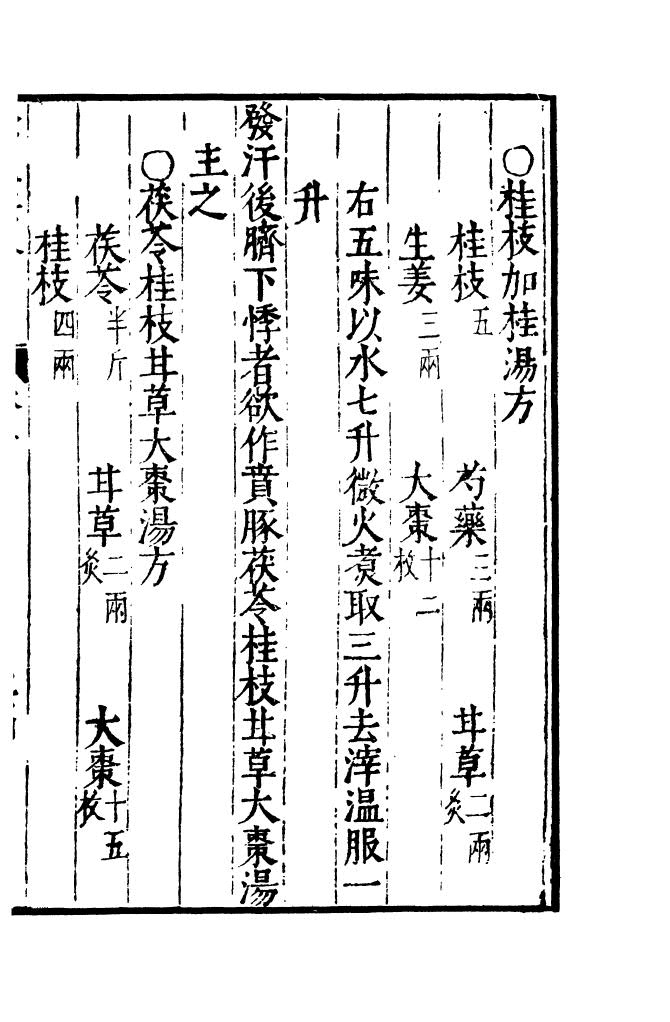 〇桂枝加桂湯方
桂枝五 芍藥三兩 甘草二兩炙
生姜三兩 大棗十二枚
右五味以水七升微火煑取三升去滓温服一
升
發汗後臍下悸者欲作賁豚茯苓桂枝甘草大棗湯
主之
〇茯苓桂枝甘草大棗湯方
茯苓半斤 甘草二兩炙 大棗十五枚
桂枝四兩